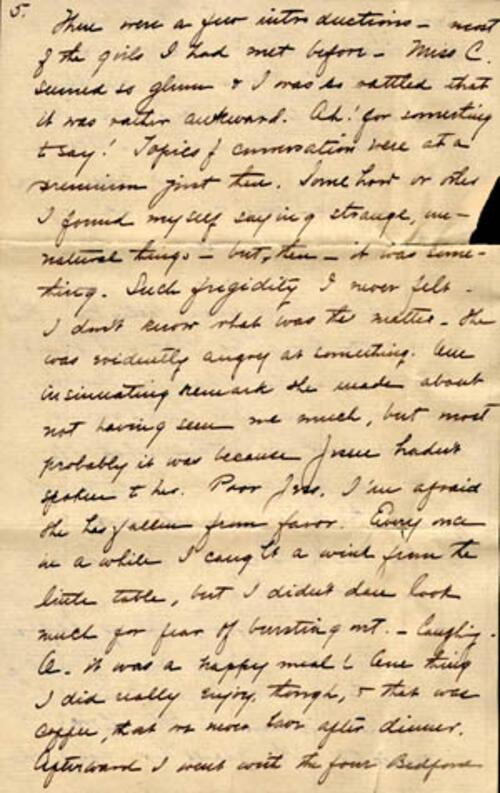 5.
There were a few introductions – most
of the girls I had met before – Miss C.
seemed so glum & I was so rattled that
it was rather awkward. Ah! for something
to say! Topics of conversation were at a
premium just then. Some how or other
I found myself saying strange, un-
natural things – but, then – it was some-
thing. Such frigidity I never felt –
I don't know what was the matter – she
was evidently angry at something. One
insinuating remark she made about
not having seen me much, but most
probably it was because Jessie hadn't
spoken to her. Poor Jess, I'm afraid
she has fallen from favor. Every once
in a while I caught a wink from the
little table, but I didn't dare look
much for fear of bursting out. – laughing.
O. it was a happy meal! One thing
I did really enjoy, though, & that was
coffee, that we never have after dinner.
Afterward I went with the four Bedford